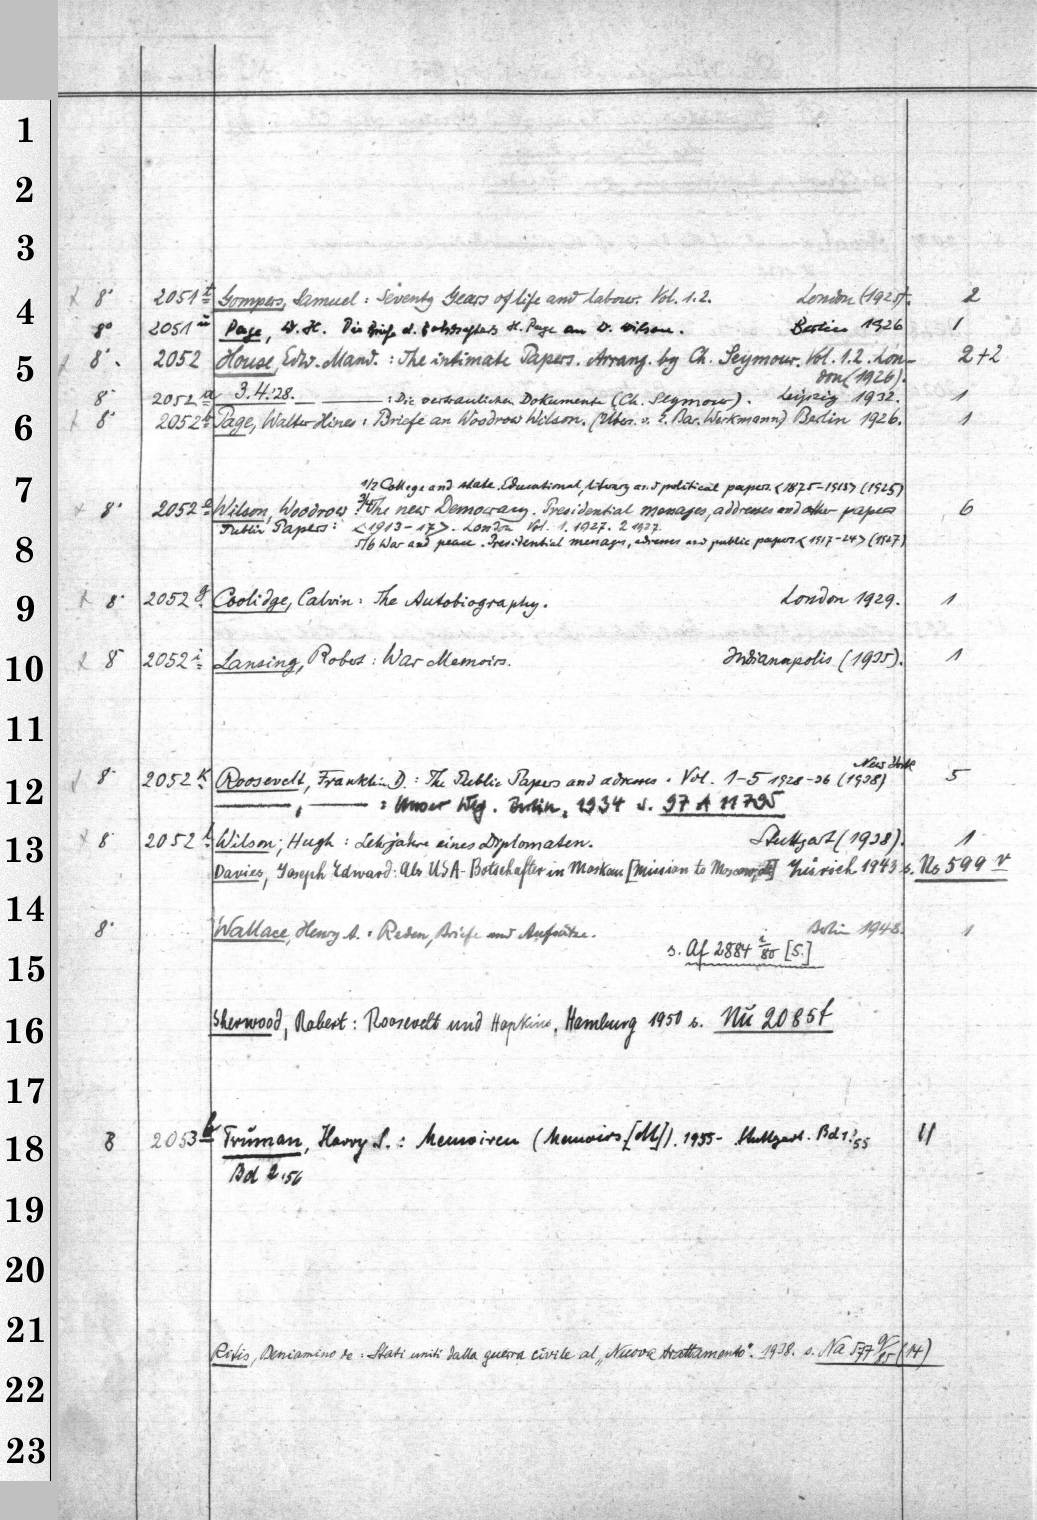 1
2
3
4
5
6
7
8
9
10
11
12
13
14
15
16
17
18
19
20
21
22
23
8° 2051 t Gompers, Samuel: Seventy Years of life and labour. Vol. 1.2. London (1925). 2
8° 2051 u Page, W. H. Die Briefe d. Botschafters H. Page an W. Wilson. Berlin 1926 1
8° 2052 House, Edw. Mand.: The intimate Papers. Arrang. by Ch. Seymour. Vol. 1.2. Lon- 2+2
don (1926).
3.4.'28.
8° 2052 a — — : Die vertraulichen Dokumente (Ch. Seymour). Leipzig 1932. 1
8° 2052 b Page, Walter Hines: Briefe an Woodrow Wilson. (Übers. v. E. Bar. Werkmann) Berlin 1926. 1
1/2 College and state. Educational, literary and political papers <1875-1913> (1925)
8° 2052 e Wilson, Woodrow 3/4 The new Democracy. Presidential messages, addresses and other papers 6
Public Papers: <1913-17>. London Vol. 1. 1927. 2 1927.
5/6 War and peace. Presidential messages, adresses and public papers <1917-24> (1927)
8° 2052 g Coolidge, Calvin: The Autobiography. London 1929. 1
8° 2052 i Lansing, Robert: War Memoirs. Indianapolis (1935). 1
New York
8° 2052 k Roosevelt, Franklin D.: The Public Papers and adresses. Vol. 1-5 1928-36 (1938) 5
—, — : Unser Weg. Berlin, 1934 s. 97 A 11795
8° 2052 l Wilson, Hugh: Lehrjahre eines Diplomaten. Stuttgart (1938). 1
Davies, Joseph Edward: Als USA-Botschafter in Moskau [Mission to Moscow, dt.] Zürich 1943 s. No 599 v
8° Wallace, Henry A.: Reden, Briefe und Aufsätze. Berlin 1948. 1
s. Af 2884 i/80 [5.]
Sherwood, Robert: Roosevelt und Hopkins. Hamburg 1950 s. Nü 2085f
8 2053 b Truman, Harry S.: Memoiren (Memoirs [dt.]). 1955- Stuttgart. Bd 1.'55 II
Bd 2.'56
Ritis, Beniamino de: Stati uniti dalla guerra civile al „Nuovo trattamento". 1938. s. Na 577 g/85 (14)